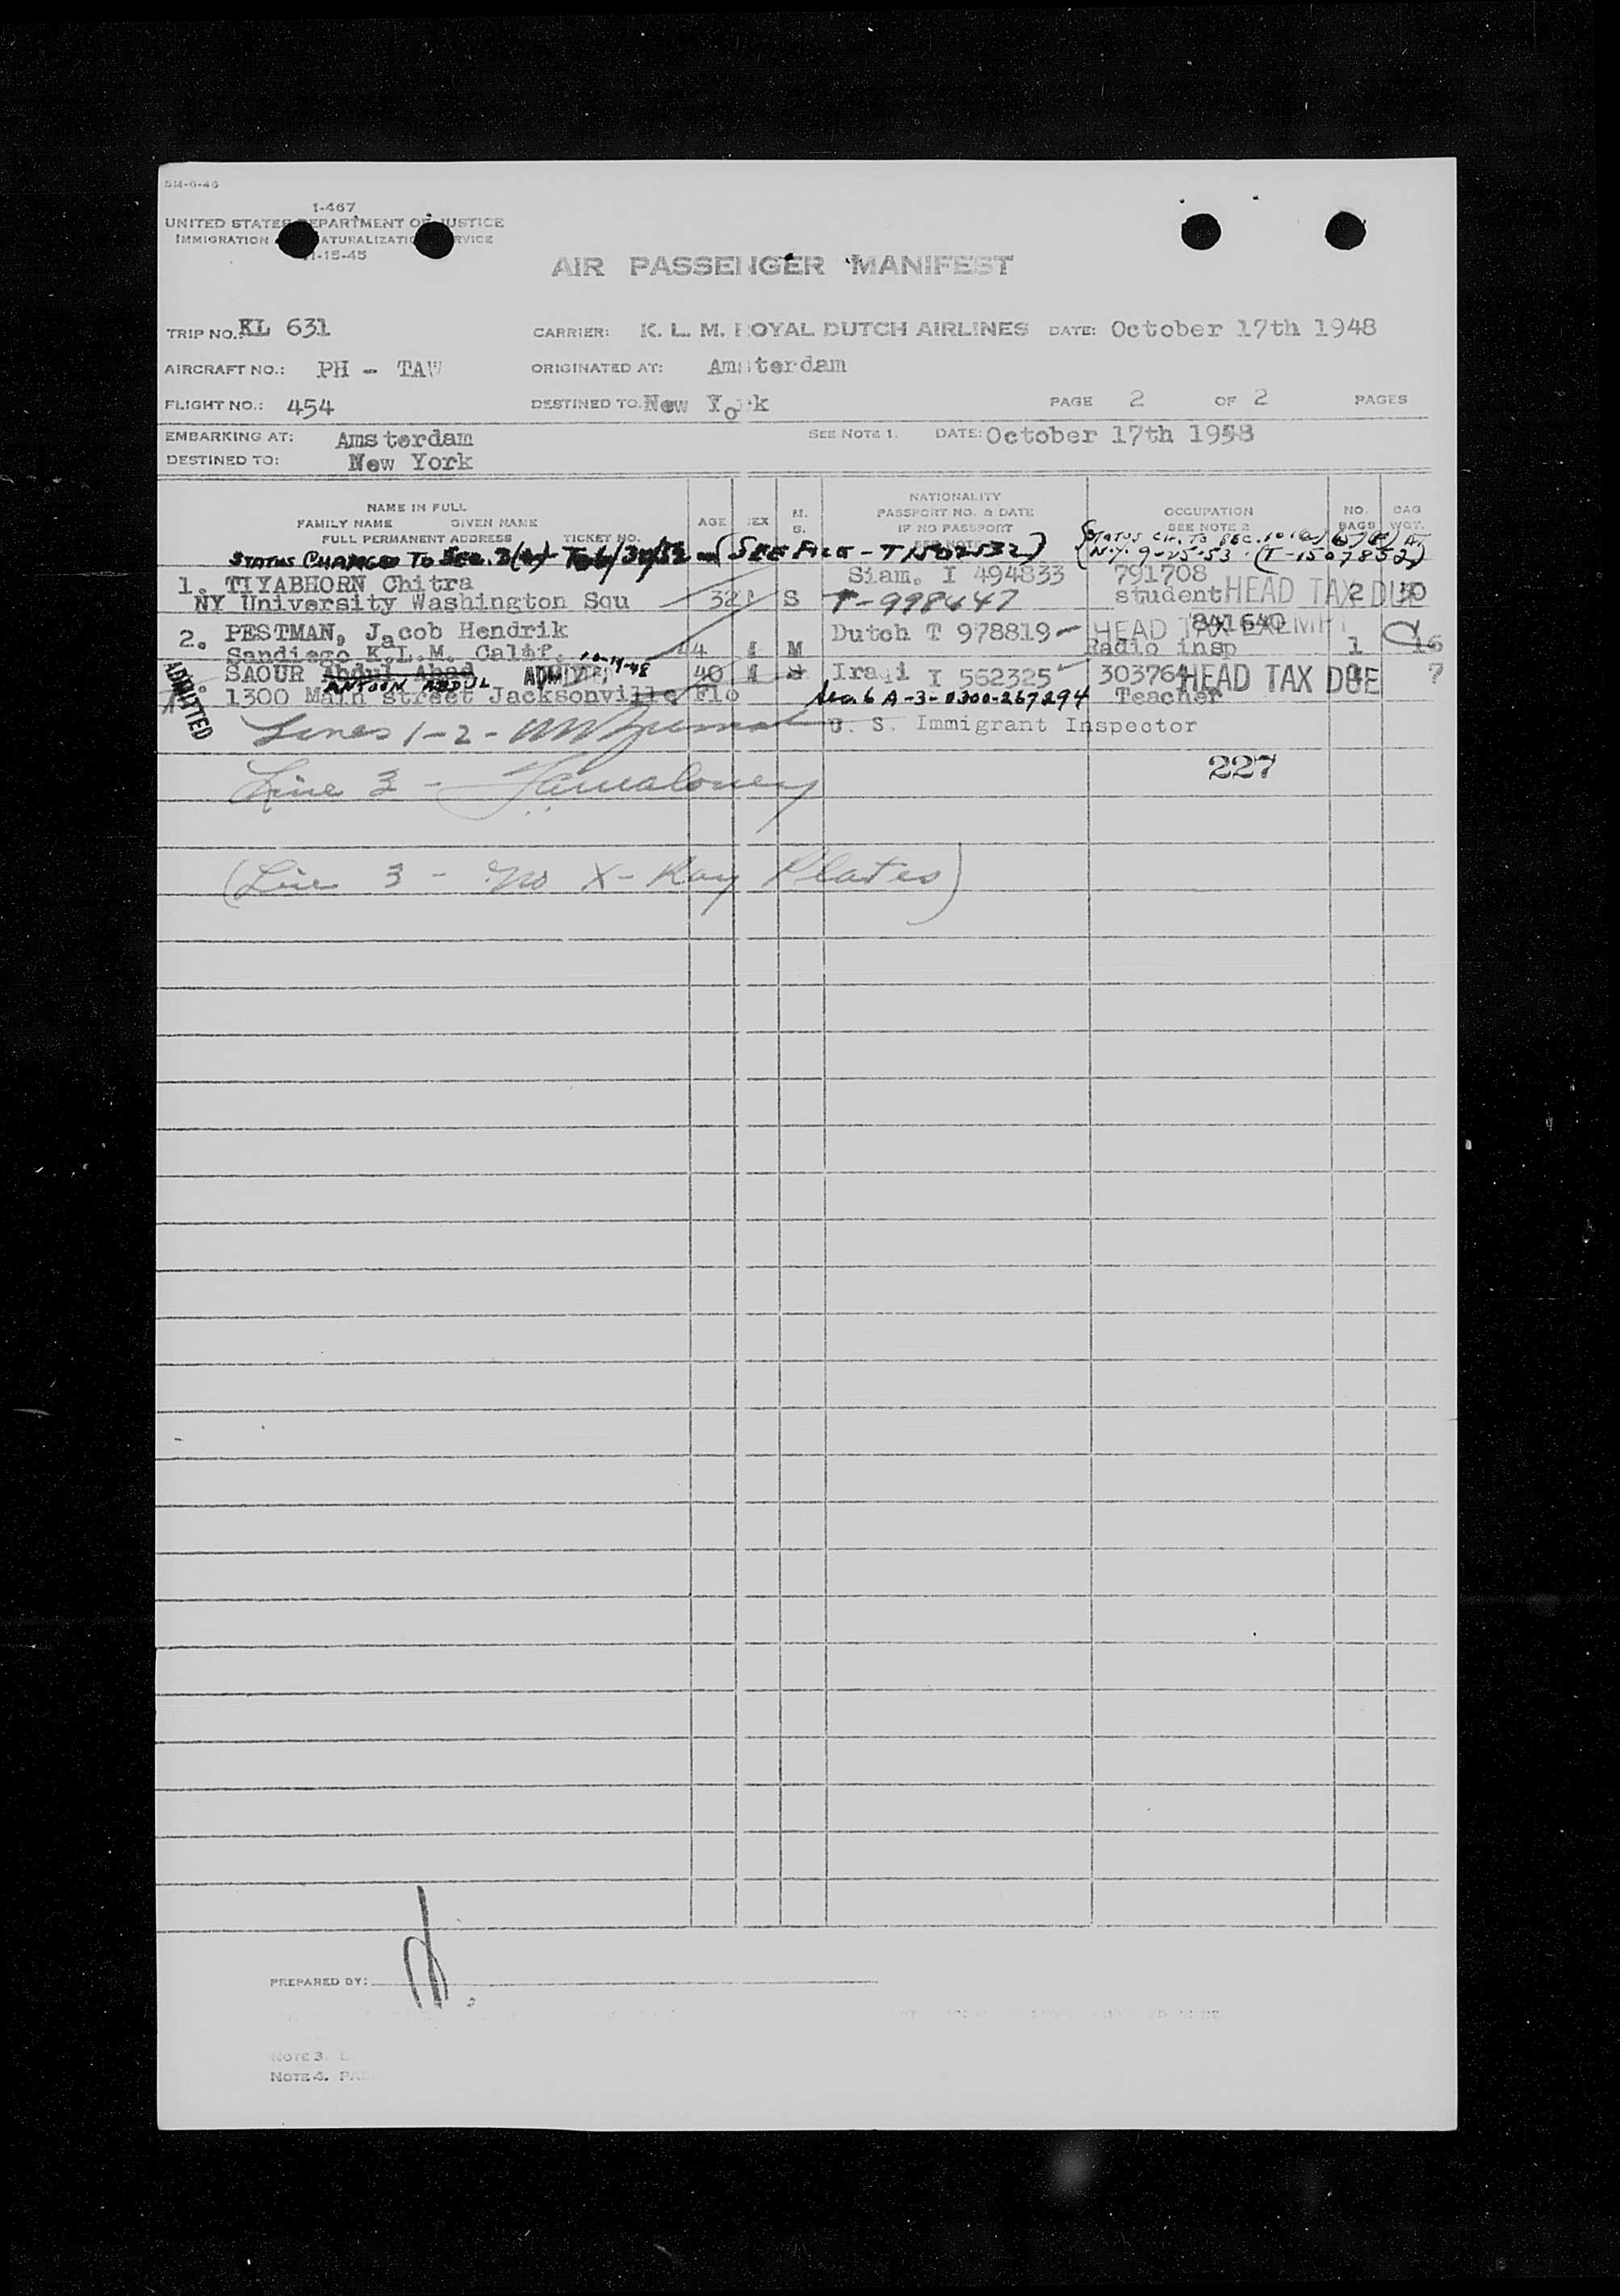 SM-6-46
I-467
UNITED STATES DEPARTMENT OF JUSTICE
IMMIGRATION NATURALIZATION SERVICE
11-15-45
AIR PASSENGER MANIFEST
TRIP NO.: KL 631 CARRIER: K. L. M. ROYAL DUTCH AIRLINES DATE: October 17th 1948
AIRCRAFT NO.: PH - TAW ORIGINATED AT: Amsterdam
FLIGHT NO.: 454 DESTINED TO. New York PAGE 2 OF 2 PAGES
EMBARKING AT: Amsterdam SEE NOTE 1. DATE: October 17th 1948
DESTINED TO: New York
NAME IN FULL
FAMILY NAME GIVEN NAME
FULL PERMANENT ADDRESS TICKET NO.
AGE SEX M. S.
NATIONALITY
PASSPORT NO. & DATE
IF NO PASSPORT
SEE NOTE
OCCUPATION
SEE NOTE 2
NO. BAGS BAG WGT.
STATUS CHANGED TO SEC. 3( ) To 6/30/52 (SEE FILE - T1502532)
(STATUS CH. TO SEC. 101(a) 15 (F) AT
N.Y. 9-25-53. (T-1507852)
1. TIYABHORN Chitra Siam. I 494833 791708
NY University Washington Squ 32 S T-998447 student HEAD TAX DUE 2 30
2. PESTMAN, Jacob Hendrik Dutch T 978819 HEAD TAX EXEMPT 841640
Sandiego K.L.M. Calif. 44 M M Radio insp 1 16
ADMITTED
SAOUR Abdul Ahad ADMITTED 10-19-48 40 M Iraqi I 562325 303764 HEAD TAX DUE 7
ANTOON ABDUL
1300 Main street Jacksonville Flo Sec. 6 A-3-0300-267294 Teacher
Lines 1-2- U. S. Immigrant Inspector
227
Line 3 -
(Line 3 - No X-Ray Plates)
PREPARED BY:
NOTE 3.
NOTE 4.